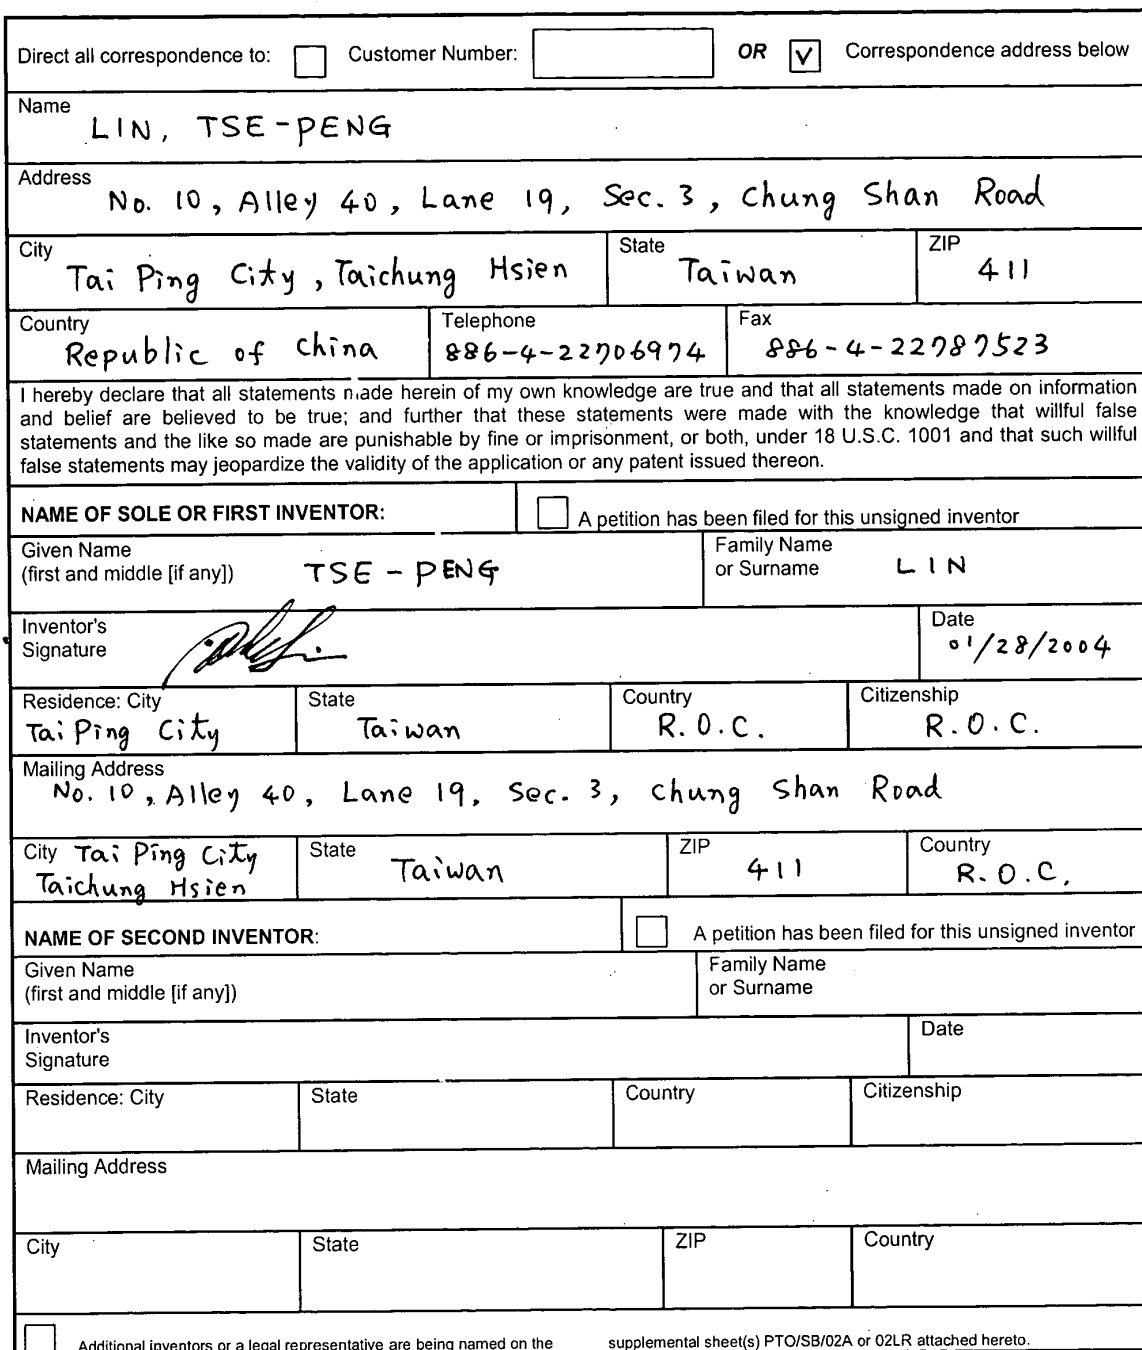 Direct all correspondence to: Customer Number: OR V Correspondence address below
Name
LIN, TSE-PENG
Address
No. 10, Alley 40, Lane 19, Sec. 3, Chung Shan Road
City State ZIP
Tai Ping City, Taichung Hsien Taiwan 411
Country Telephone Fax
Republic of China 886-4-22706974 886-4-22787523
I hereby declare that all statements made herein of my own knowledge are true and that all statements made on information
and belief are believed to be true; and further that these statements were made with the knowledge that willful false
statements and the like so made are punishable by fine or imprisonment, or both, under 18 U.S.C. 1001 and that such willful
false statements may jeopardize the validity of the application or any patent issued thereon.
NAME OF SOLE OR FIRST INVENTOR: A petition has been filed for this unsigned inventor
Given Name
(first and middle [if any]) TSE-PENG
Family Name
or Surname LIN
Inventor's
Signature
Date
01/28/2004
Residence: City State Country Citizenship
Tai Ping City Taiwan R.O.C. R.O.C.
Mailing Address
No. 10, Alley 40, Lane 19, Sec. 3, Chung Shan Road
City Tai Ping City State ZIP Country
Taichung Hsien Taiwan 411 R.O.C.
NAME OF SECOND INVENTOR: A petition has been filed for this unsigned inventor
Given Name
(first and middle [if any])
Family Name
or Surname
Inventor's
Signature
Date
Residence: City State Country Citizenship
Mailing Address
City State ZIP Country
Additional inventors or a legal representative are being named on the supplemental sheet(s) PTO/SB/02A or 02LR attached hereto.